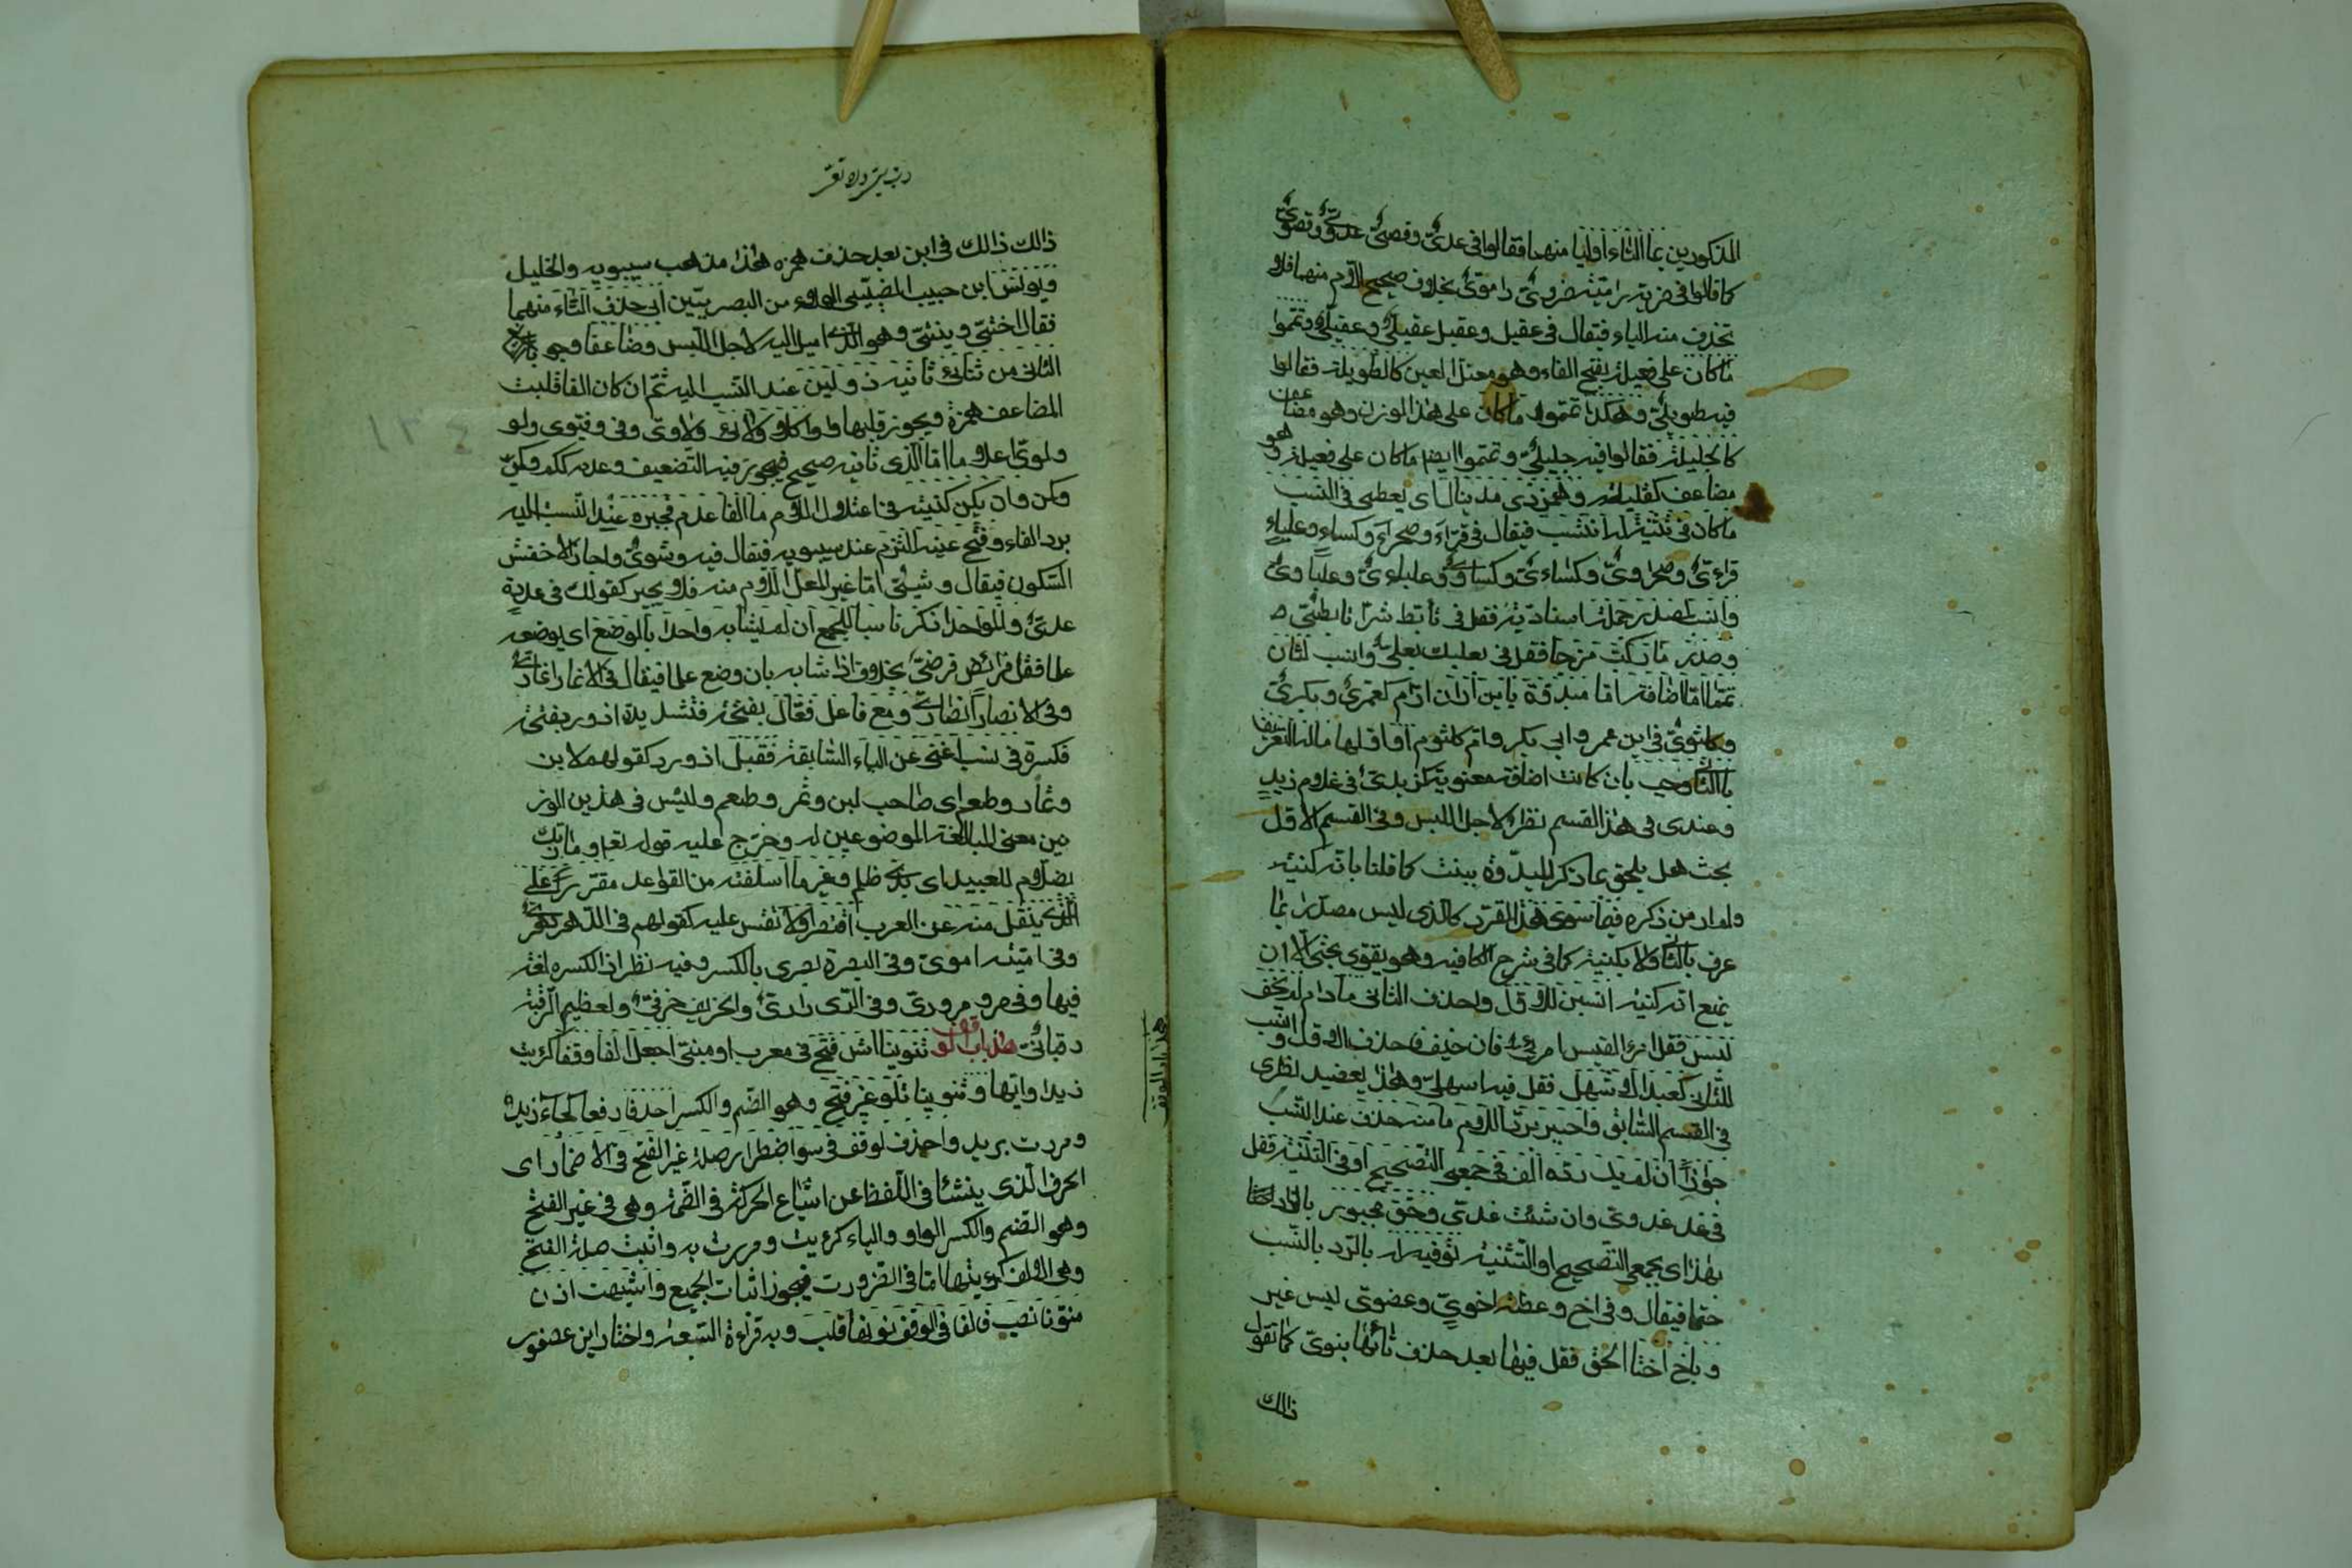 المذكورين بما التاء اوليا منهما فقالوا فى عدىّ وقصىّ عدوىّ وقصوىّ
كما قالوا فى ضربة اميّة ضروىّ واموىّ بخلاف صحيح اللام منهما فلا
تحذف منه الياء فيقال فى عقيل وعقيل عقيلىّ وعقيلىّ وتمّموا
ما كان على فعيلة بفتح الفاء وهو معتل العين كالطويلة فقالوا
فيه طويلىّ وهكذا تمّموا ما كان على هذا الوزن وهو مضاعف
كالجليلة فقالوا فيه جليلىّ وتمّموا ايضا ما كان على فعيلة وهو
مضاعف كقليلة وهمز ذى مدّ ينال اى يعطى فى النسب
ما كان فى تثنية له انتسب فيقال فى قرّاء وصحراء وكساء وعلباء
قراءىّ وصحراوىّ وكساءىّ وكساوىّ وعلباءىّ وعلباوىّ
وانسب لصدر جملة اسناديّة فقل فى تأبّط شرّا تأبّطىّ و
وصدر ما ركّب مزجا فقل فى بعلبك بعلىّ وانسب لثان
تمّما امّا اضافة امّا مبدوّة بابن او ان ام كعمرىّ وبكرىّ
وكلثومىّ فى ابن عمر وابى بكر وام كلثوم او اقبلها ماله التعريف
بالثانى وجب بان كانت اضافة معنويّة كزيدىّ فى غلام زيد
وعندى فى هذا القسم نظر لاجل اللبس وفى القسم الاول
بحث هل يلحق بما ذكر المبدوّة ببنت كما قلنا بانه كنية
ولم ار من ذكره فيما سوى هذا المقرّر كالذى ليس مصدّرا بما
عرف بالثانى ولا بكنية كما فى شرح الكافيه وهو يقوى بحثى الا ان
يمنع انه كنية انسبن للاوّل واحذف الثانى ما دام لم يخف
لبس فقل فى امرء القيس امرئىّ فان خيف فاحذف الاول وانسب
للثانى كعبد الاشهل فقل فيه اشهلىّ وهذا يعضد نظرى
فى القسم السابق واجبر بردّ اللام ما منه حذف عند النسب
جوازا ان لم يك ردّه الف فى جمعى التصحيح او فى التثنية فقل
فى غد غدوىّ وان شئت غدىّ وحقّ مجبور بالردّ
بهذا اى بجمعى التصحيح او التثنية توفيه له بالرّد بالنسب
حتما فيقال وفى اخ وعضة اخوىّ وعضوىّ ليس غير
وباخ اختا الحق فقل فيها بعد حذف تائها بنوىّ كما تقول
ذالك
ذالك ذالك فى ابن بعد حذف همزه هذا مذهب سيبويه والخليل
ويونس ابن حبيب الضبّىّ الولاء من البصريّين ابى حذف التاء منهما
فقال اختىّ وبنتىّ وهو الّذى اميل اليه لاجل اللبس وضاعفا وجوبا
الثانى من ثنائىّ ثانيه ذو لين عند النسب اليه ثم ان كان الفا قلبت
المضاعف همزة ويجوز قلبها واوا كلا ولائىّ ولاوىّ وفى وفيّوى ولو
ولوىّ اعلاما امّا الذى ثانيه صحيح فيجوز فيه التضعيف وعدمه ككم وكمّىّ
وكن وان يكن كشية فى اعتلال اللام ما الفا عدم فجبره عند النسب اليه
برد الفاء وفتح عينه التزم عند سيبويه فيقال فيه وشوىّ واجاز الاخفش
السّكون فيقال وشيىّ امّا غير المعلّ اللام منه فلا يجبر كقولك فى عدة
عدىّ والواحد اذكر ناسبا للجمع ان لم يشابه واحدا بالوضع اى بوضعه
علما فقل فى فرائض فرضىّ بخلاف اذا شابه بان وضع علما فيقال فى الانمار انمارىّ
وفى الانصار انصارىّ ومع فاعل فعّال بفتحة فتشديدة او ربفتحة
فكسرة فى نسب اغنى عن الياء السّابقة فقبل اذ ورد كقولهم لابن
وتمّار وطعم اى صاحب لبن وتمر وطعم وليس فى هذين الوزنين
من معنى المبالغة الموضوعين له وخرّج عليه قوله تعالى وما ربّك
بظلّام للعبيد اى بذى ظلم وغير ما اسلفته من القواعد مقرّرا على
الّذى ينقل منه عن العرب اقتصرا ولا تقس عليه كقولهم فى الدّهر دهرىّ
وفى اميّة اموىّ وفى البصرة بصرى بالكسر وفيه نظر اذ الكسره لغة
فيها وفى مرو مروزىّ وفى الرّى رازىّ والخريف خرفىّ ولعظيم الرّقبة
رقبانىّ هذا باب الوقف تنوينا اثر فتح فى معرب او مبنى اجعل الفا وقفا كرءيت
زيدا وايها وتنوينا تلو غير فتح وهو الضّم والكسر احذفا رفعا كجاء زيد
ومررت بزيد واحذف لوقف فى سوى اضطرار صلة غير الفتح فى الاضمار اى
الحرف الّذى ينشأ فى اللّفظ عن اشباع الحركة فى الضّمة وهى فى غير الفتح
وهو الضّم والكسر الواو والياء كرءيته ومررت به واثبت صلة الفتح
وهى الالف كرءيتها امّا فى الضّرورت فيجوز اثبات الجميع واشبهت اذن
منوّنا نصب فالفا فى الوقف نونها قلب وبه قراءة السّبعة واختار ابن عصفور
هذا باب الوقف